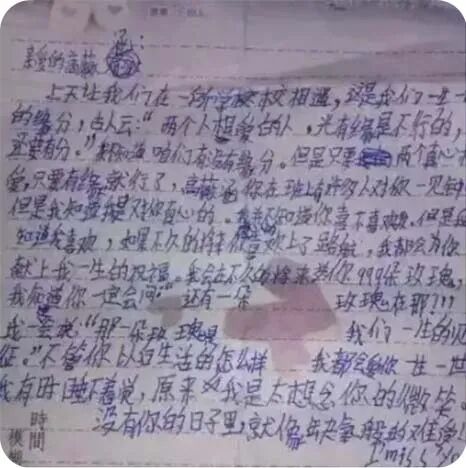 亲爱的高薇涵:
上天让我们在一所学校相遇,这是我们一生一
的缘分,古人云:“两个人相爱的人,光有缘是不行的,
还要有分。”我不知道咱们有没有缘分。但是只要两个真心
爱,只要有缘就行了,高薇涵你在班上有许多人对你一见钟
但是我知道我是对你真心的。我不知道你喜不喜欢我。但是我
知道我喜欢,如果不久的将来你喜欢上了,我都会为你
献上我一生的祝福。我会在不久的将来送你999朵玫瑰,
我知道你一定会问:“还有一朵玫瑰在那?!!
我一会说:“那一朵玫瑰是我们一生的见
证。”不管你以后生活的怎么样 我都会陪你一生一世
我有时睡不着觉,原来我是太想念你的微笑。
没有你的日子里,就像缺氧般的难受!
時間
I miss